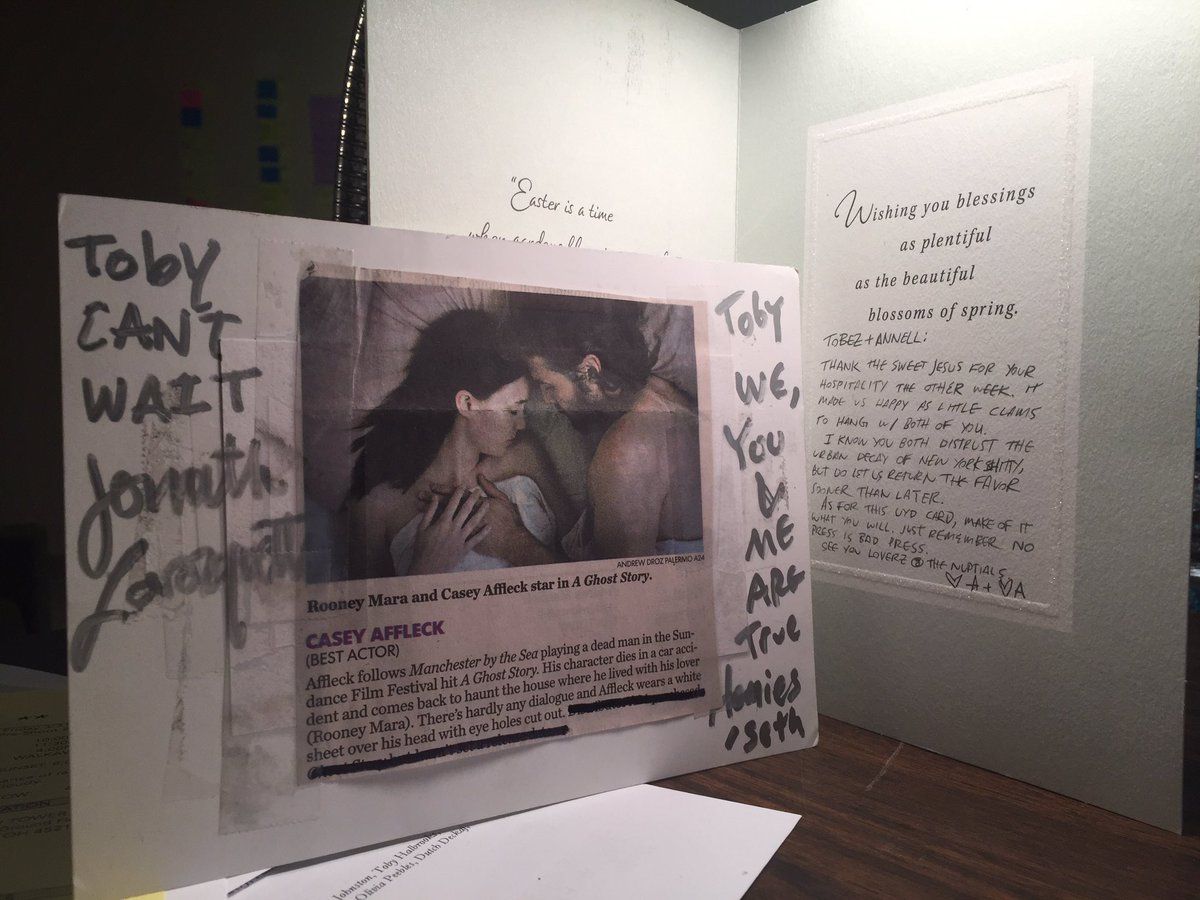 Toby
CAN'T
WAIT
Toby
WE,
You
&
ME
ARE
True
Homies
, seth
ANDREW DROZ PALERMO A24
Rooney Mara and Casey Affleck star in A Ghost Story.
CASEY AFFLECK
(BEST ACTOR)
Affleck follows Manchester by the Sea playing a dead man in the Sun-
dance Film Festival hit A Ghost Story. His character dies in a car acci-
dent and comes back to haunt the house where he lived with his lover
(Rooney Mara). There's hardly any dialogue and Affleck wears a white
sheet over his head with eye holes cut out.
"Easter is a time
Wishing you blessings
as plentiful
as the beautiful
blossoms of spring.
TOBEZ + ANNELL:
THANK THE SWEET JESUS FOR YOUR
HOSPITALITY THE OTHER WEEK. IT
MADE US HAPPY AS LITTLE CLAMS
TO HANG W/ BOTH OF YOU.
I KNOW YOU BOTH DISTRUST THE
URBAN DECAY OF NEW YORK SHITTY,
BUT DO LET US RETURN THE FAVOR
SOONER THAN LATER.
AS FOR THIS UYD CARD, MAKE OF IT
WHAT YOU WILL. JUST REMEMBER NO
PRESS IS BAD PRESS.
SEE YOU LOVERZ @ THE NUPTIALS
♡ A + ♡ A
Johnston, Toby Halbrooks
Olivia Peebles, Dutch